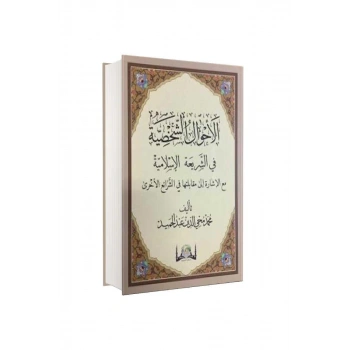 الأحوال الشخصية
في الشريعة الإسلامية
مع الإشارة إلى مقابلتها في الشرائع الأخرى
تأليف
محمد محيي الدين عبد الحميد